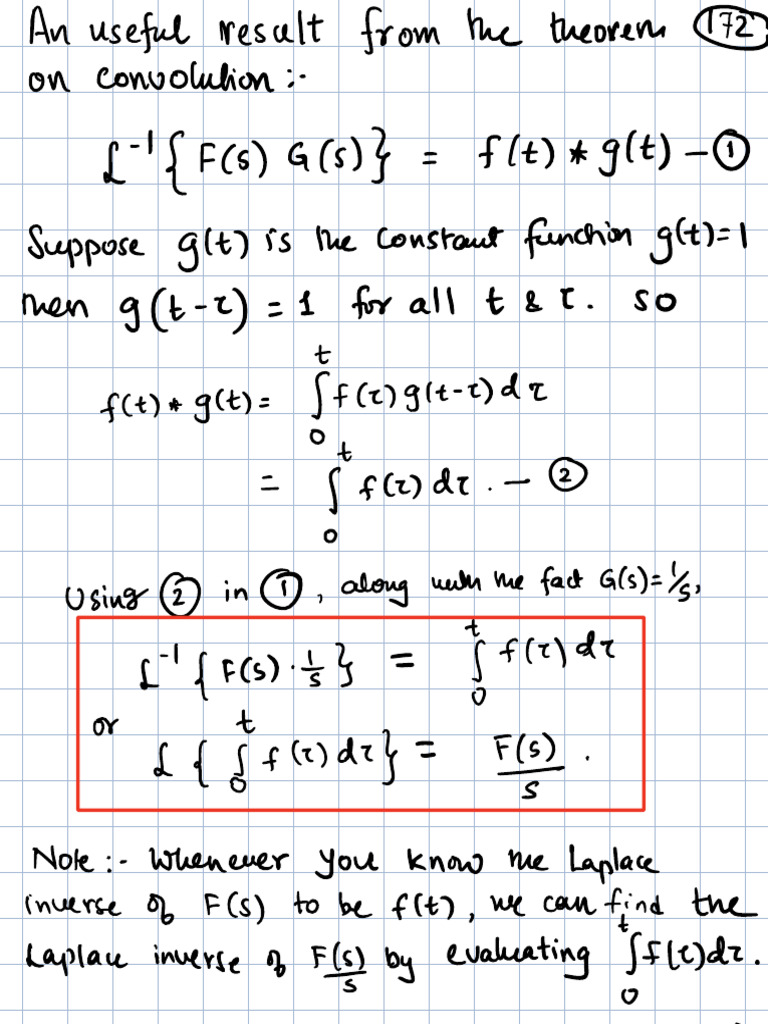 An useful result from the theorem 172
on convolution :-
L⁻¹{ F(s) G(s)} = f(t) * g(t) – ①
Suppose g(t) is the constant function g(t)=1
then g(t-τ) = 1 for all t & τ. so
f(t) * g(t) = ∫₀ᵗ f(τ) g(t-τ) dτ
= ∫₀ᵗ f(τ) dτ . – ②
Using ② in ①, along with the fact G(s)=1/s,
L⁻¹{ F(s) · 1/s } = ∫₀ᵗ f(τ) dτ
or
L { ∫₀ᵗ f(τ) dτ} = F(s)/s .
Note :- Whenever you know the Laplace
inverse of F(s) to be f(t), we can find the
Laplace inverse of F(s)/s by evaluating ∫₀ᵗ f(τ)dτ.